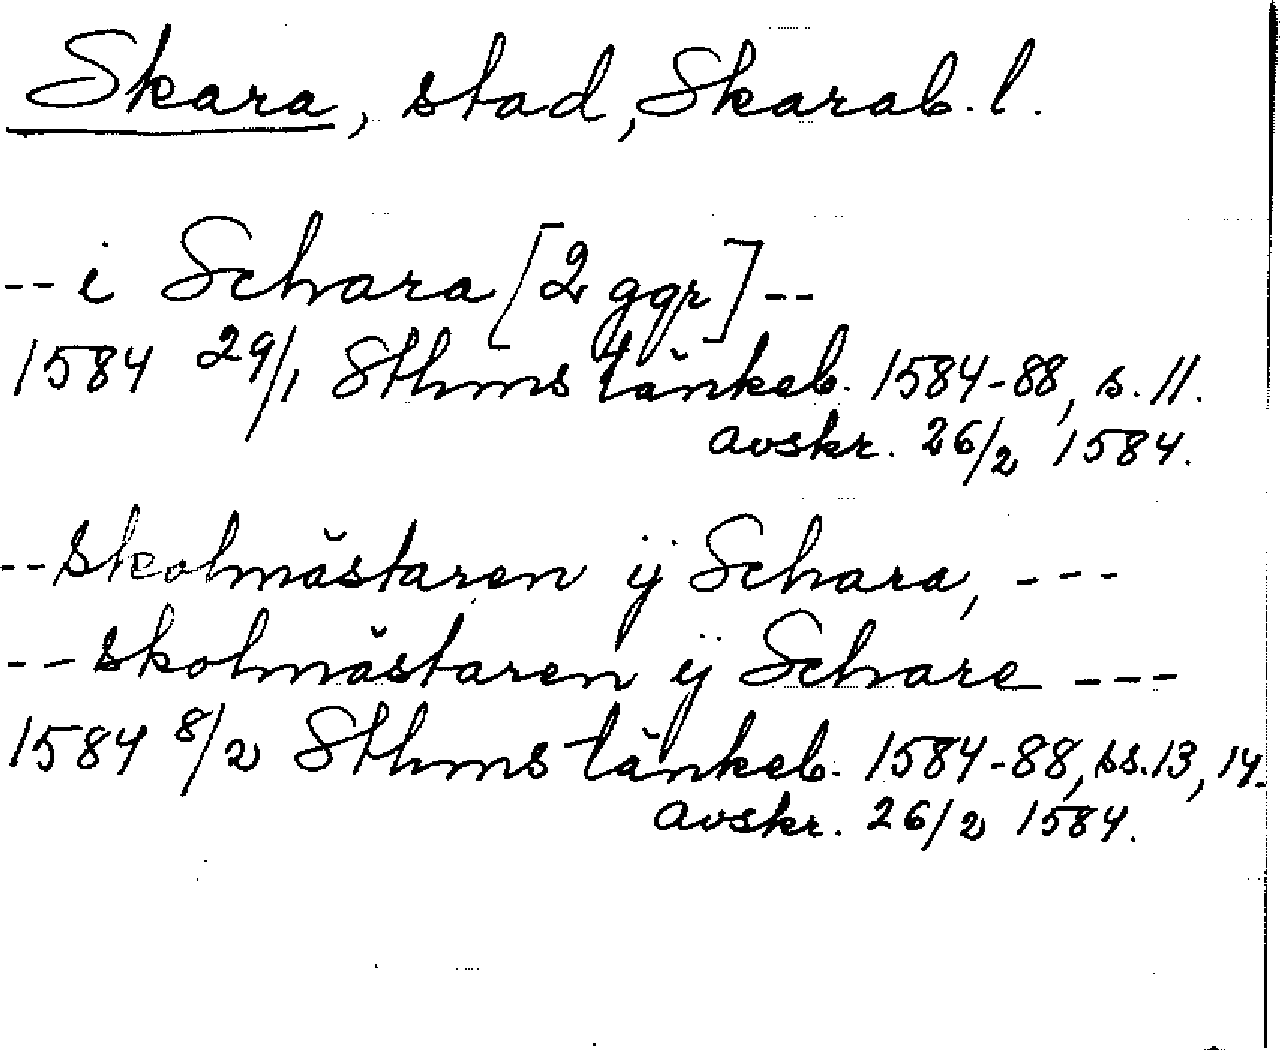 Skara, stad, Skarab. l.
-- i Schara [2 ggr] --
1584 29/1 Sthms tänkeb. 1584-88, s. 11.
avskr. 26/2 1584.
-- skolmästaren ij Schara, ---
-- skolmästaren ij Schare ---
1584 8/2 Sthms tänkeb. 1584-88, ss. 13, 14.
avskr. 26/2 1584.